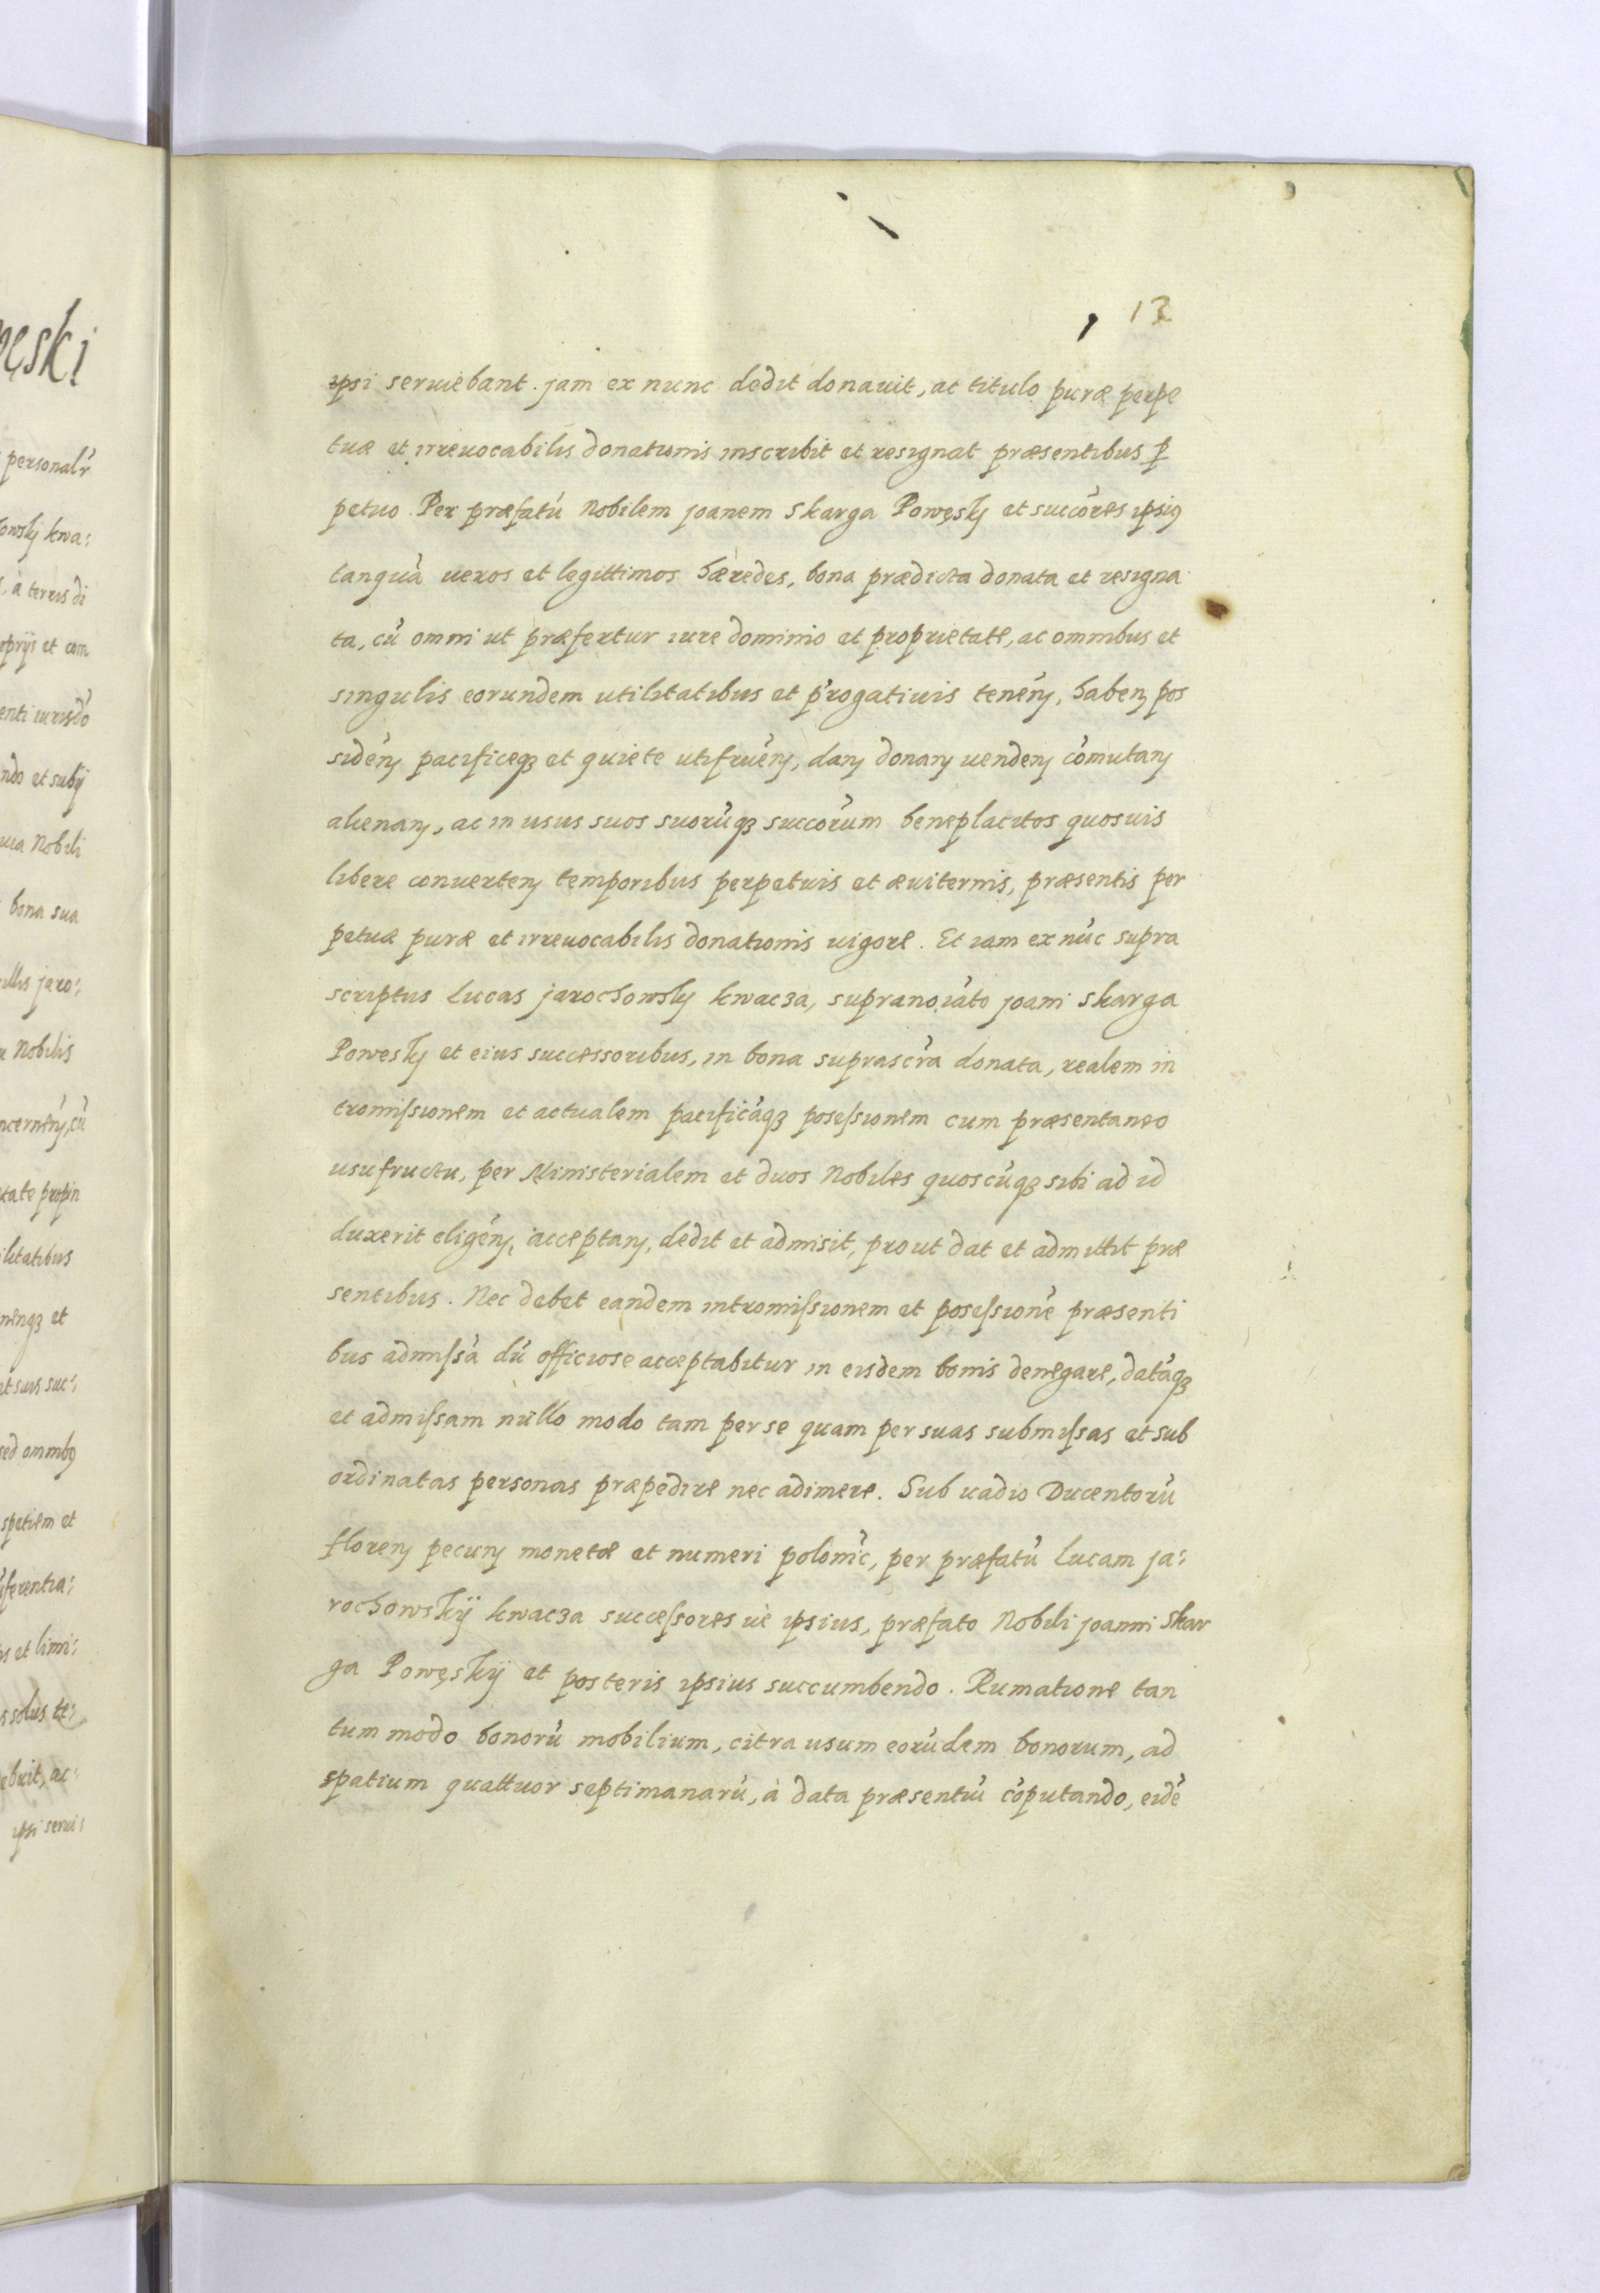 ęski
personalr̃
owskÿ kwa:
à terris di
oprijs et com
enti iurisdõ
ndo et subij
ua Nobili
bona sua
illis jaro:
Nobilis
ncernen̄, cũ
tate propin
ilitatibus
nenqȝ et
et suis suc:
sed omnibꝫ
spetiem et
ferentia:
s et limi:
s solus te:
ebuit, ac
ipsi servi:
13
ipsi seruiebant. jam ex nunc dedit donauit, ac titulo puræ perpe
tuæ et irreuocabilis donationis inscribit et resignat præsentibus ꝑ
petuo. Per præfatũ Nobilem joanem Skarga Powęskÿ et succõres ipsiꝰ
tanquã ueros et legittimos hæredes, bona prædicta donata et resigna
ta, cũ omni ut præfertur iure dominio et proprietate, ac omnibus et
singulis eorundem utilitatibus et p̃rogatiuis tenen̄, haben̄ pos
siden̄ pacificeqȝ et quiete utifruen̄, dan̄ donan̄ uenden̄ cõmutan̄
alienan̄, ac in usus suos suorũqȝ succõrum beneplacitos quosuis
libere conuerten̄ temporibus perpetuis et æuiternis, præsentis per
petuæ puræ et irreuocabilis donationis uigore. Et iam ex nũc supra
scriptus Lucas jarochowskÿ kwacȝa, supranoĩato joanĩ Skarga
Poweskÿ et eius successoribus, in bona suprascr̃a donata, realem in
tromiſsionem et actualem pacificãqȝ poseſsionem cum præsentaneo
usufructu, per Ministerialem et duos Nobiles quoscũqȝ sibi ad id
duxerit eligen̄, acceptan̄, dedit et admisit, prout dat et admittit præ
sentibus. Nec debet eandem intromiſsionem et poseſsionẽ præsenti
bus admiſsã dũ officiose acceptabitur in eisdem bonis denegare, datãqȝ
et admiſsam nullo modo tam per se quam per suas submiſsas et sub
ordinatas personas præpedire nec adimere. Sub uadio Ducentorũ
floren̄ pecun̄ monetæ et numeri poloniĉ, per præfatũ Lucam ja:
rochowskÿ kwacȝa succeſsores uè ipsius, præfato Nobili joanni Skar
ga Powęskÿ et posteris ipsius succumbendo. Rumatione tan
tum modo bonorũ mobilium, citra usum eorũdem bonorum, ad
spatium quattuor septimanarũ, à data præsentiũ cõputando, eidẽ